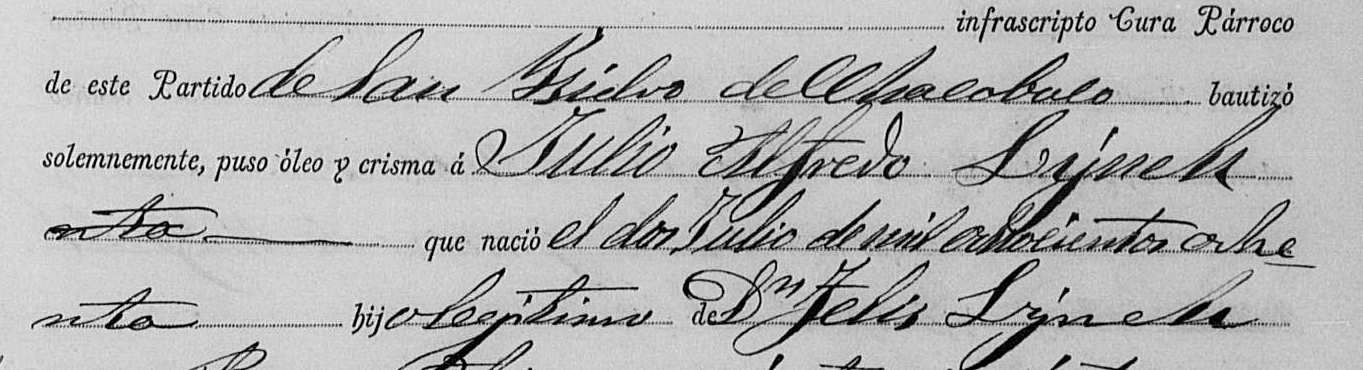 infrascripto Cura Párroco
de este Partido de San Ysidro del Chacabuco bautizó
solemnemente, puso óleo y crisma á Julio Alfredo Lynch
nta que nació el dos Julio de mil ochocientos oche
nta hijo legitimo de Dn Felis Lynch